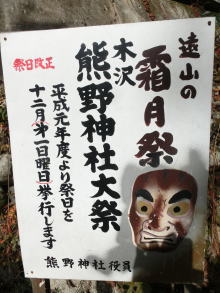 遠山の
霜月祭
木沢
熊野神社大祭
祭日改正
平成元年度より祭日を
十二月第一日曜日挙行します
熊野神社役員